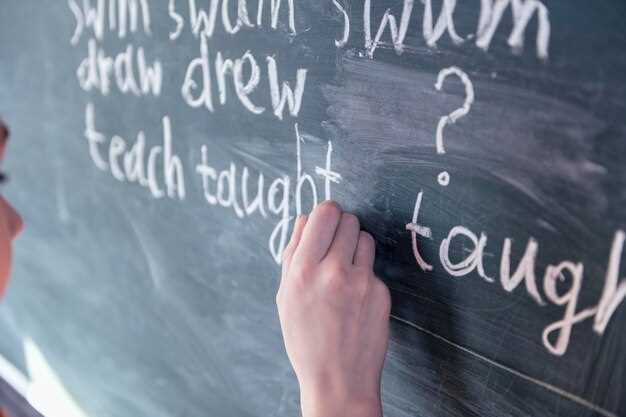 swim swam swum
draw drew ?
teach taught taugh